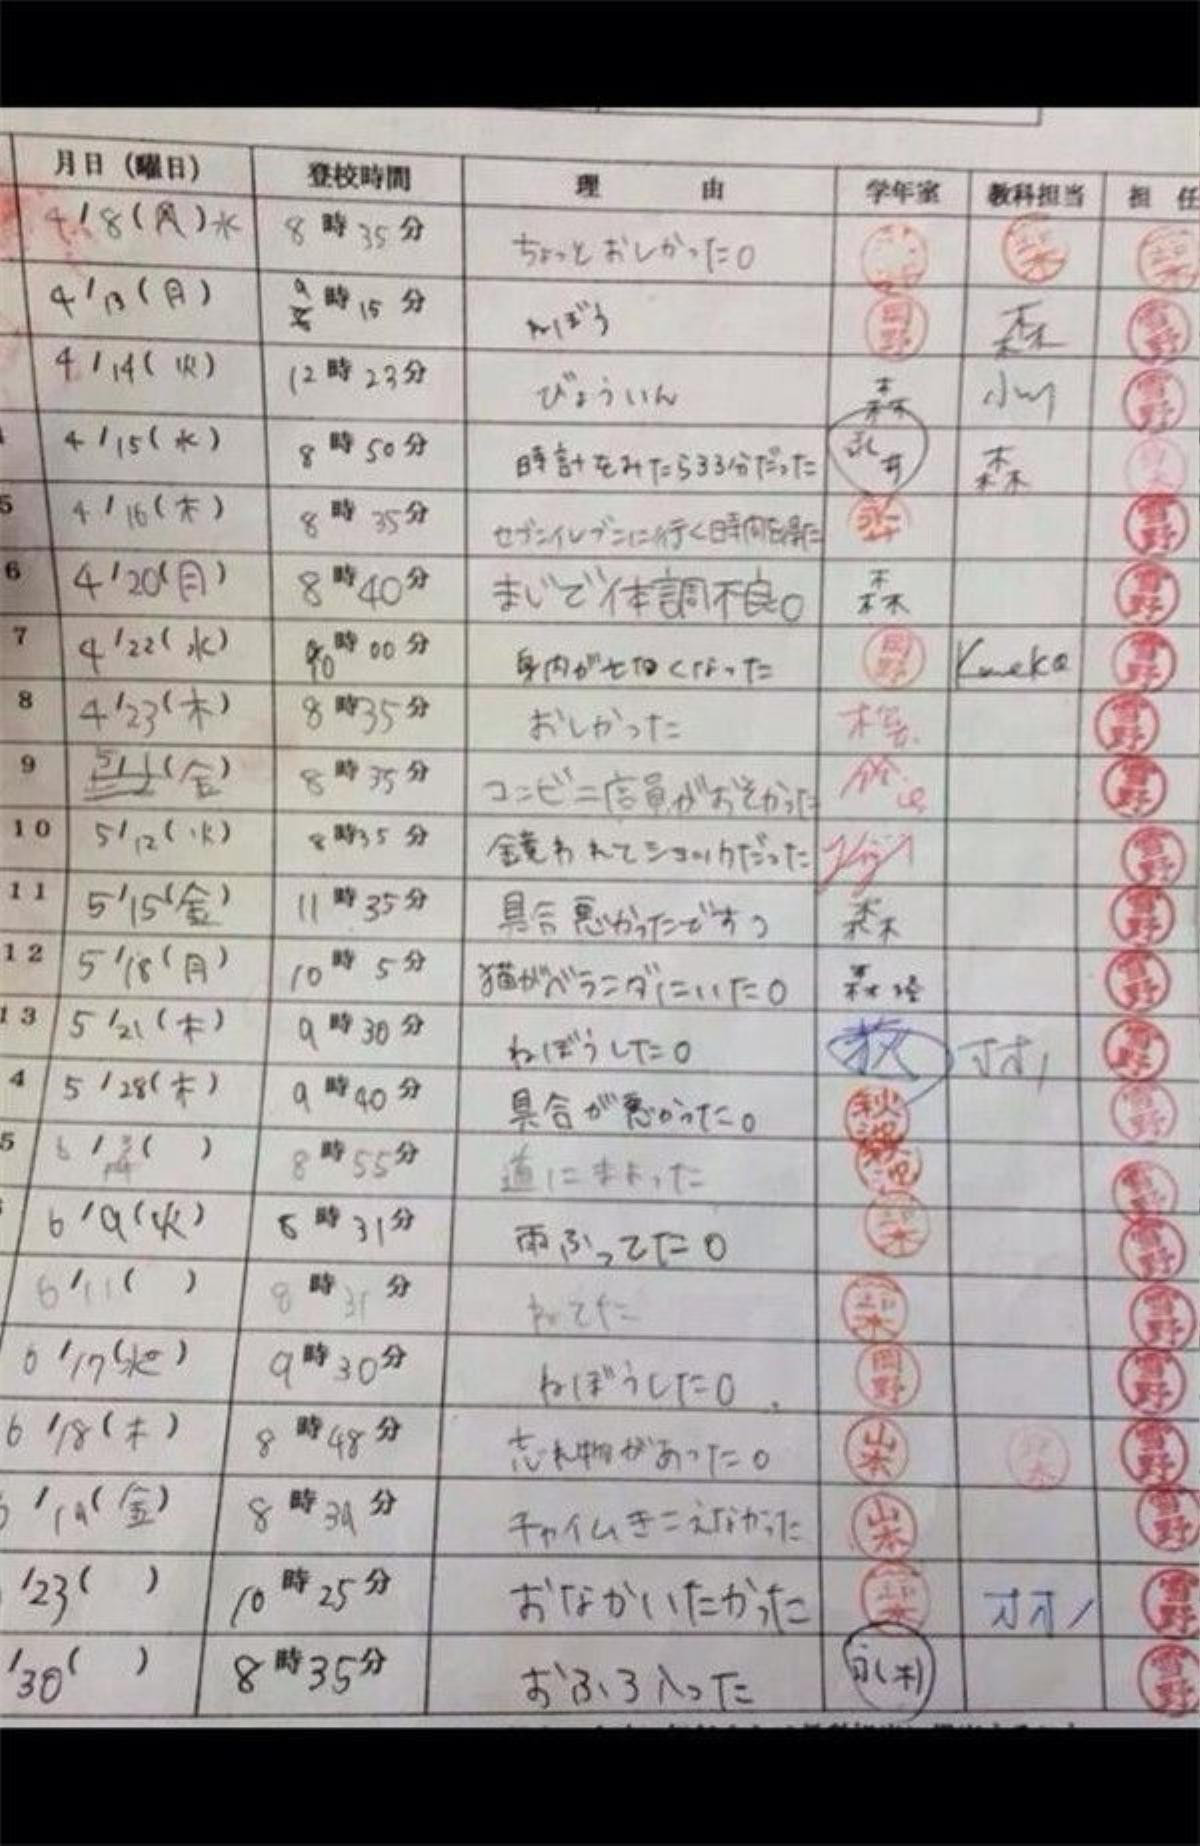 月日(曜日) 登校時間 理由 学年室 教科担当 担任
4/8(火)水 8時35分 ちょっとおしかった。
4/13(月) 9時15分 ねぼう 岡野 森 雪野
4/14(火) 12時23分 びょういん 森 小川 雪野
4/15(水) 8時50分 時計をみたら33分だった 森
5 4/16(木) 8時35分 セブンイレブンに行く時間を得た 雪野
6 4/20(月) 8時40分 まじで体調不良。 森 雪野
7 4/22(水) 10時00分 身内が亡くなった 岡野 Kaneko 雪野
8 4/23(木) 8時35分 おしかった 雪野
9 (金) 8時35分 コンビニ店員がおそかった 雪野
10 5/12(火) 8時35分 鏡われてショックだった 雪野
11 5/15(金) 11時35分 具合悪かったです。 森 雪野
12 5/18(月) 10時5分 猫がベランダにいた。 雪野
13 5/21(木) 9時30分 ねぼうした。 オオノ 雪野
4 5/28(木) 9時40分 具合が悪かった。 雪野
5 6/ ( ) 8時55分 道にまよった 雪野
6/9(火) 8時31分 雨ふってた。 雪野
6/11( ) 8時31分 ねてた 雪野
6/17(水) 9時30分 ねぼうした。 岡野 雪野
6/18(木) 8時48分 忘れ物があった。 山本 雪野
/19(金) 8時39分 チャイムきこえなかった 山本 雪野
/23( ) 10時25分 おなかいたかった オオノ 雪野
/30( ) 8時35分 おふろ入った 雪野